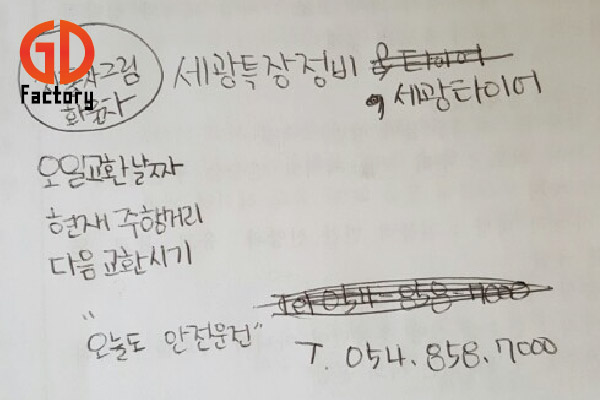 GD
Factory
그림
화물차
세광특장정비 & 타이어
, 세광타이어
오일교환날짜
현재 주행거리
다음 교환시기
Tel 054-858-7000
"오늘도 안전운전"
T. 054. 858. 7000